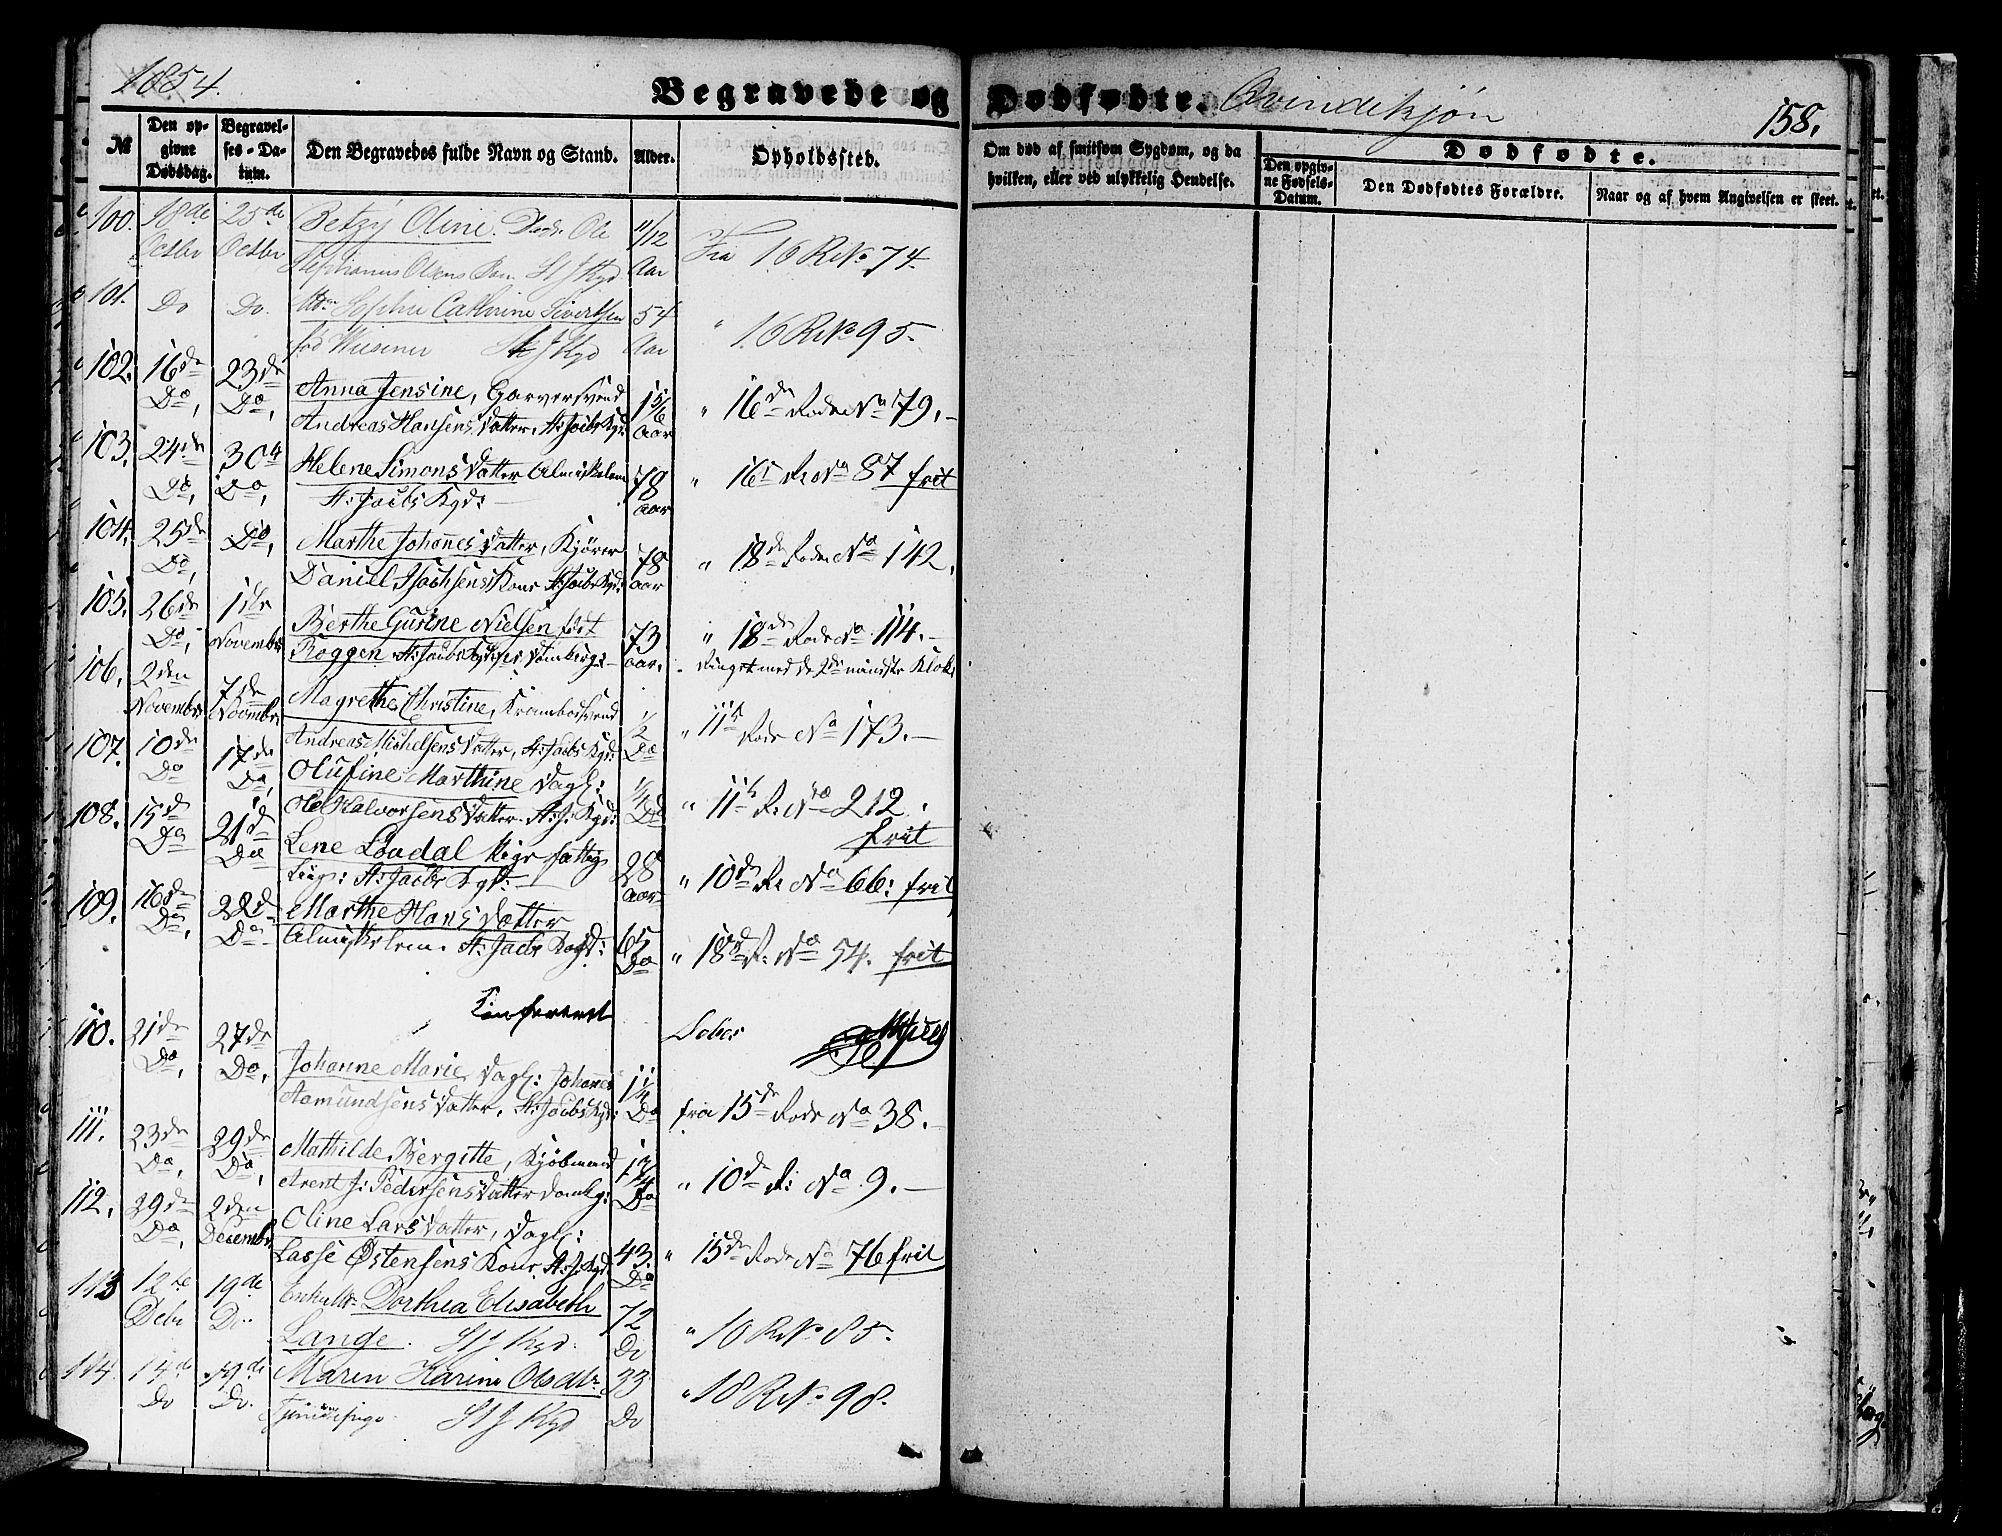 1854.
Begravede og Dødfødte. Qvindekjøn
158.
№
Den opgivne Dødsdag.
Begravelses-Datum.
Den Begravedes fulde Navn og Stand.
Alder.
Opholdssted.
Om død af smitsom Sygdom, og da hvilken, eller ved ulykkelig Hendelse.
Dødfødte.
Den opgivne Fødsels-Datum.
Den Dødfødtes Forældre.
Naar og af hvem Angivelsen er skeet.
100. 18de 25de Betzy Oline. Ole 11/12
Octbr Octbr Stephanus Olsens St J Kgd Aar Fra 16 R No 74.
101. Do Do. Sophie Cathrine Sivertsen 54
fød Wiesener St J Kgd Aar " 16 R No 95.
102. 16de 23de Anna Jensine, Garversvend 1 5/6
Do, Do, Andreas Hansens Datter, St: Jacbs Kgd: aar " 16de Rode No 79.
103. 24de 30te Helene Simons Datter Almisselem 78
Do, Do, St: Jacbs Kgd: aar " 16de R: No 87 frit
104. 25de Do, Marthe Johannes Datter, Kjører 78
Do, Daniel Isachsens Kone St: Jacbs Kgd: aar " 18de Rode No 142.
105. 26de 1ste Berthe Gurine Nielsen født 73
Do, November Roggen St: Jacbs Domkirge aar. " 18de Rode No 114.
Ringet med de 2de mindste Klok:
106. 2den 7de Magrethe Christine, Krambodsvend 1/2
November November Andreas Michelsens Datter, St: Jacbs Kgd: Do " 11te Rode No 173.
107. 10de 17de Olufine Marthine Dagl:
Do Do, Ole Halvorsens Datter. St: J: Kgd: 1/4 Do " 11te R: No 212.
frit
108. 15de 21de Lene Loudal Pige fattig 28
Do Do Liig: St: Jacbs Kgd: aar " 10de R: No 66: frit
109. 16de 22de Marthe Hans Datter
Do, Do Almisselem. St: Jacbs Kgd: 65 Do " 18de R: No 54. frit
Confereret
110. 21de 27de
Do, Do, Johanne Marie, Dagl: Johannes 1 1/4
Aamundsens Datter, St: Jacbs Kgd: Do fra 15de Rode No 38.
111. 23de 29de Mathilde Bergitte, Kjøbmand
Do, Do, Arent J: Pedersens Datter Domkg: Do " 10de R: No 9.
112. 29de 2den Oline Lars Datter, Dagl:
Do, December Lasse Østensens Kone. St: J: Kgd. 43. Do " 15de Rode No 76 frit
113 12te 19de Enke Dorthea Elisabeth 72
Debr Do Lange. St J Kgd. Do " 10 R No 85.
114. 14de 19de Maren Karine Olsdtr 33
Do Do. St J Kgd Do " 18 R No 98.